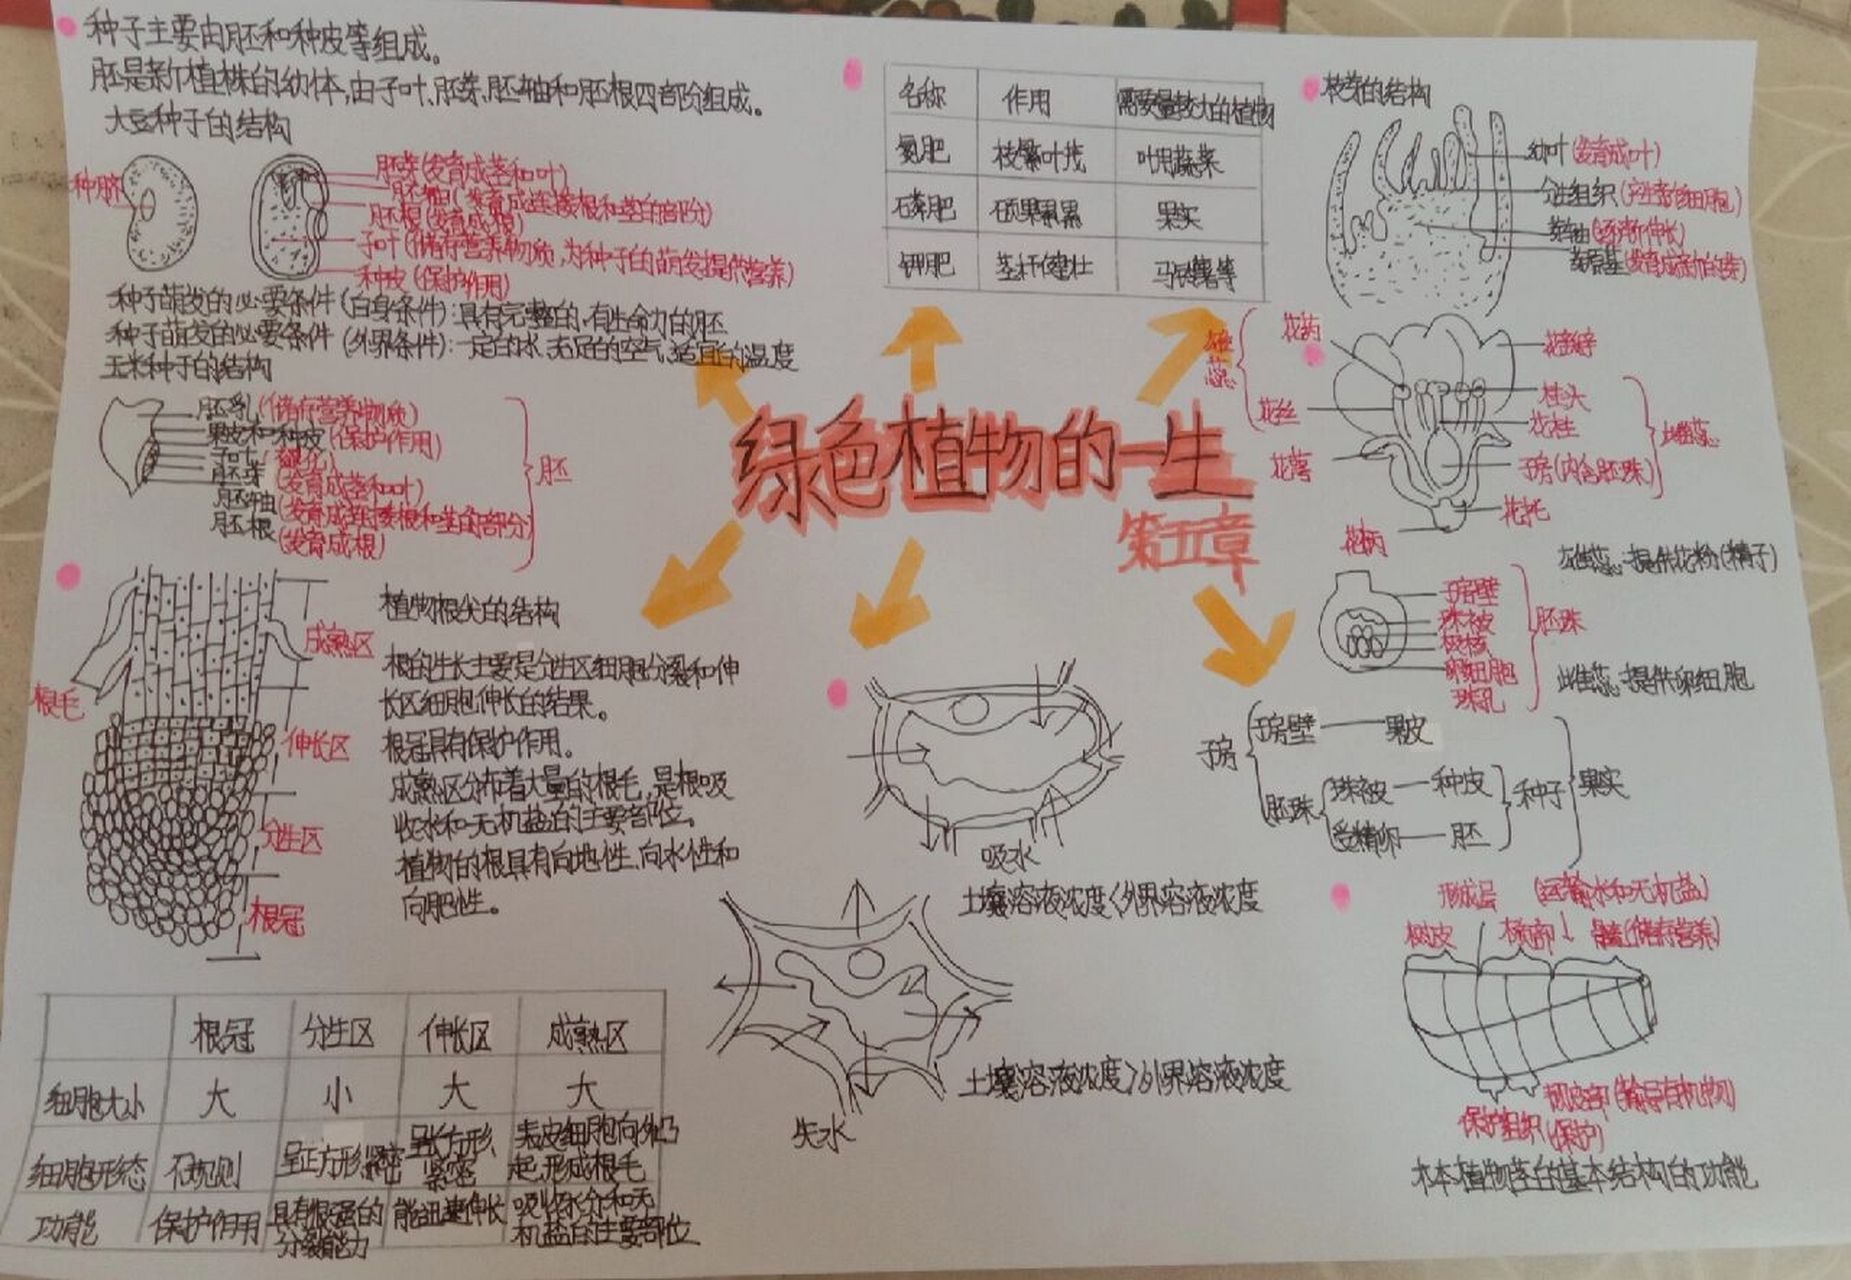 种子主要由胚和种皮等组成。
胚是新植株的幼体,由子叶、胚芽、胚轴和胚根四部阶组成。
大豆种子的结构
种脐
胚芽(发育成茎和叶)
胚轴(发育成连接根和茎的部分)
胚根(发育成根)
子叶(储存营养物质,为种子的萌发提供营养)
种皮(保护作用)
种子萌发的必要条件(自身条件):具有完整的,有生命力的胚
种子萌发的必要条件(外界条件):一定的水、充足的空气、适宜的温度
玉米种子的结构
胚乳(储存营养物质)
果皮和种皮(保护作用)
子叶
胚芽(发育成茎和叶)
胚轴(发育成连接根和茎的部分)
胚根(发育成根)
胚
名称 作用 需要量较大的植物
氮肥 枝繁叶茂 叶用蔬菜
磷肥 硕果累累 果实
钾肥 茎杆健壮 马铃薯等
枝芽的结构
幼叶(发育成叶)
分生组织(产生新的细胞)
芽轴(逐渐伸长)
芽原基(发育成新的芽)
绿色植物的一生
第五章
雄蕊
花药
花丝
花萼
花柄
花瓣
柱头
花柱
子房(内含胚珠)
雌蕊
花托
雄蕊:提供花粉(精子)
子房壁
珠被
极核
卵细胞
珠孔
胚珠
雌蕊:提供卵细胞
子房
子房壁——果皮
胚珠
珠被—种皮
受精卵—胚
种子
果实
植物根尖的结构
成熟区
根毛
伸长区
分生区
根冠
根的生长主要是分生区细胞分裂和伸
长区细胞伸长的结果。
根冠具有保护作用。
成熟区分布着大量的根毛,是根吸
收水和无机盐的主要部位。
植物的根具有向地性、向水性和
向肥性。
吸水
土壤溶液浓度<外界溶液浓度
土壤溶液浓度>外界溶液浓度
失水
形成层 (运输水和无机盐)
树皮 木质部↓ 髓(储存营养)
韧皮部(输导有机物)
保护组织(保护)
木本植物茎的基本结构的功能
根冠 分生区 伸长区 成熟区
细胞大小 大 小 大 大
细胞形态 不规则 呈正方形紧密 呈长方形、紧密 表皮细胞向外凸起,形成根毛
功能 保护作用 具有很强的分裂能力 能迅速伸长 吸收水分和无机盐的主要部位